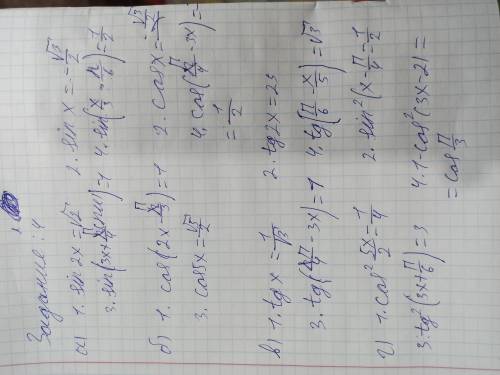 Задание: 4
а) 1. sin 2x = √2/2   2. sin x = -√3/2
3. sin(3x+π/4) = 1   4. sin(x/3 + π/6) = 1/2
б) 1. cos(2x - π/3) = 1   2. cos x = -√3/2
3. cos 5x = √2/2   4. cos(π/4 - 3x) =
= 1/2
в) 1. tg x = 1/√3   2. tg 2x = 25
3. tg(π/4 - 3x) = 1   4. tg(π/6 - x/5) = √3
г) 1. cos² 5x/2 = 1/4   2. sin²(x - π/4 = 1/2
3. tg²(3x + π/6) = 3   4. 1 - cos²(3x - 2) =
= cos π/3